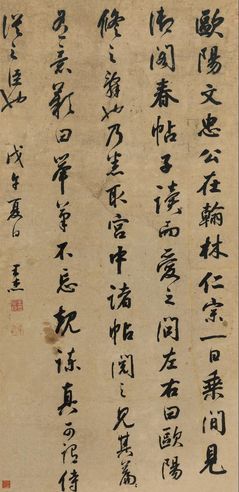 歐陽文忠公在翰林仁宗一日乘間見
御閣春帖子讀而愛之問左右曰歐陽
修之辭也乃悉取宮中諸帖閱之見其篇
有意歎曰舉筆不忘規諫真可謂侍
從之臣也 戊午夏日